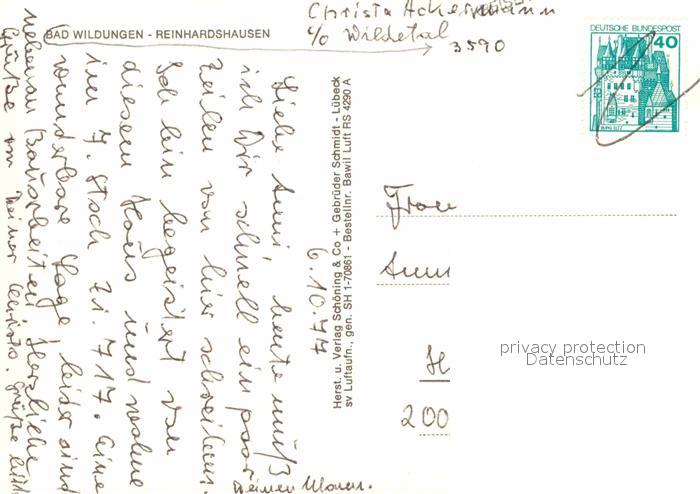 BAD WILDUNGEN - REINHARDSHAUSEN
Christa Ackermann
c/o Wildetal
3590
DEUTSCHE BUNDESPOST
40
BURG ELTZ
6.10.77
Liebe Anni, heute muß
ich Dir schnell ein paar
Zeilen von hier schreiben.
Ich bin begeistert von
diesem Haus und wohne
im 7. Stock Zi. 717. Eine
wunderbare Lage, leider sind
nebenan Bauarbeiten. Herzliche
Grüße von Deiner Christa. Grüße bitte
Deinen Mann.
Herst. u. Verlag Schöning & Co + Gebrüder Schmidt - Lübeck
sv Luftaufn., gen. SH 1-70861 - Bestellnr. Bawil Luft RS 4290 A
Frau
H
200
privacy protection
Datenschutz